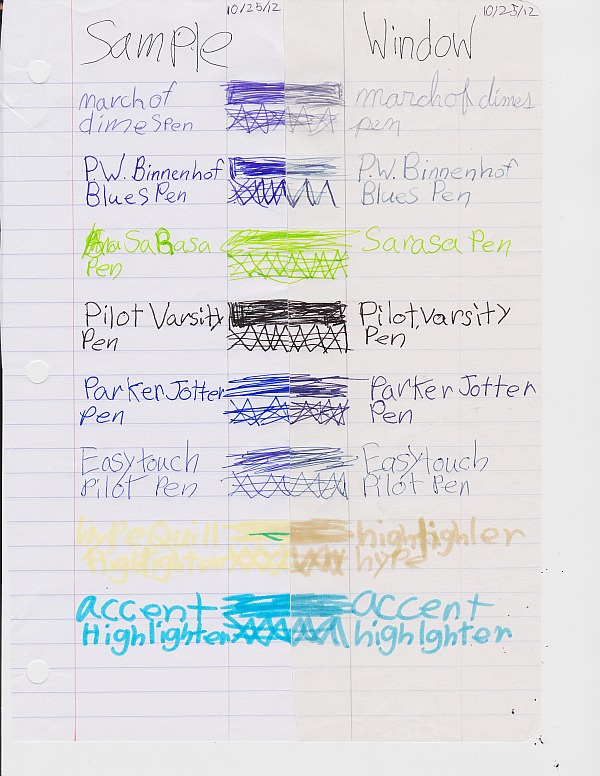 10/25/12 10/25/12
Sample Window
march of marchof dimes
dimes Pen pen
P.W. Binnenhof P.W. Binnenhof
Blues Pen Blues Pen
SaRasa Sarasa Pen
Pen
Pilot Varsity Pilot Varsity
Pen Pen
Parker Jotter Parker Jotter
Pen Pen
Easytouch Easytouch
Pilot Pen Pilot Pen
hypeQuill highlighler
Highlighter hype
accent accent
Highlighter highlghter